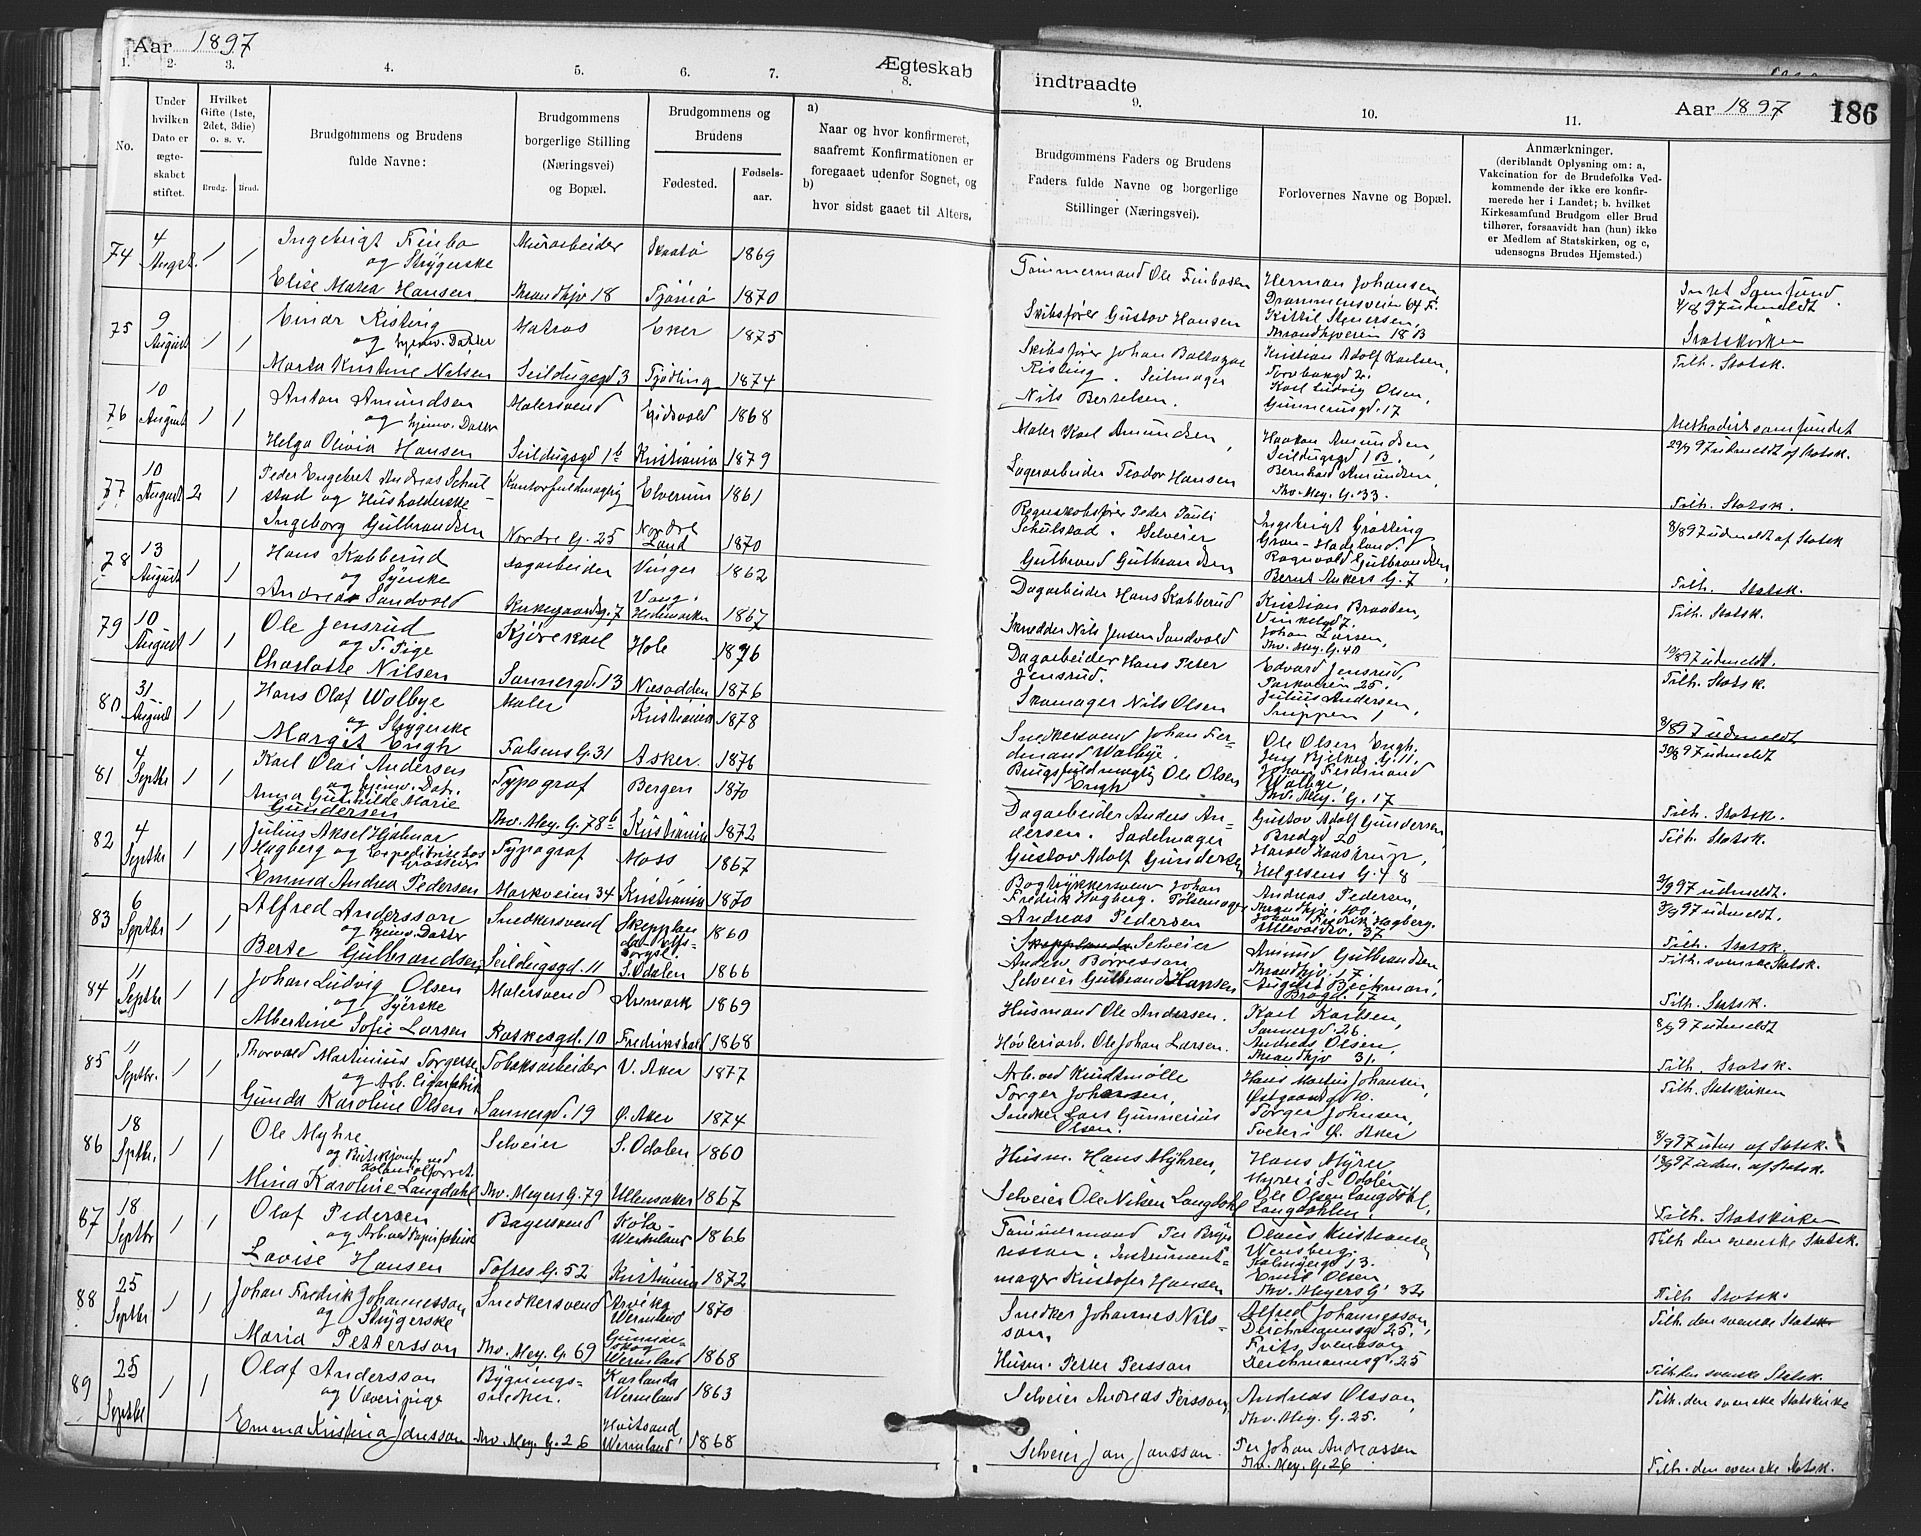 Aar 1897
Ægteskab
indtraadte
Aar 1897
186
1. 2. 3. 4. 5. 6. 7. 8. 9. 10. 11.
No.
Under hvilken Dato er ægteskabet stiftet.
Hvilket Gifte (1ste, 2det, 3die) o. s. v.
Brudg. Brud.
Brudgommens og Brudens fulde Navne:
Brudgommens borgerlige Stilling (Næringsvei) og Bopæl.
Brudgommens og Brudens
Fødested. Fødselsaar.
a) Naar og hvor konfirmeret, saafremt Konfirmationen er foregaaet udenfor Sognet, og
b) hvor sidst gaaet til Alters.
Brudgommens Faders og Brudens Faders fulde Navne og borgerlige Stillinger (Næringsvei).
Forlovernes Navne og Bopæl.
Anmærkninger.
(deriblandt Oplysning om: a, Vakcination for de Brudefolks Vedkommende der ikke ere konfirmerede her i Landet; b. hvilket Kirkesamfund Brudgom eller Brud tilhører, forsaavidt han (hun) ikke er Medlem af Statskirken, og c, udensogns Brudes Hjemsted.)
74 4 August 1 1 Ingebrigt Finbo Murarbeider Skaatø 1869
og Strygerske
Elise Maria Hansen Trondhjv 18 Tjömö 1870
Tømmermand Ole Finbosen Herman Johansen
Drammensveien 64 F.
Skibsfører Gustav Hansen Kittil Stenersen,
Trondhjveien 18 B
4/8 97 udmeldt
Statskirken
75 9 August 1 1 Einar Risting Matros Eker 1875
og hjemv. Datter
Marta Kristine Nilsen Seildugsgd. 3 Tjødling 1874
Skibsfører Johan Baltazar Kristian Adolf Karlsen,
Risting. Seilmager Torvbakgd 2.
Nils Bertelsen. Karl Ludvig Olsen,
Gunnerusgd. 17
Tilh. Statsk.
76 10 August 1 1 Anton Amundsen Malersvend Eidsvold 1868
og hjemv. Datter
Helga Olivia Hansen Seildugsgd 1b Kristiania 1879
Maler Karl Amundsen, Haakon Amundsen,
Seildugsgd 1 B.
Lagerarbeider Teodor Hansen Bernhard Amundsen,
Thv. Mey. G. 33.
Methodistsamfundet
29/7 97 udmeldt af Statsk.
77 10 August 2 1 Peder Engebret Andreas Schulstad og Husholderske Kontorfuldmægtig Elverum 1861
Ingeborg Gulbrandsen Nordre G. 25 Nordre Land 1870
Regnskabsfører Peder Pauli Ingebrigt Grøtting
Schulstad. Selveier Gran-Hadeland.
Gulbrand Gulbrandsen Ragnvald Gulbrandsen,
Bernt Ankers G. 7
Tilh. Statsk.
8/8 97 udmeldt af Statsk
78 13 August 1 1 Hans Kabberud Dagarbeider Vinger 1862
og Syerske
Andrea Sandvold Kirkegaardsg. 7 Vang, Hedemarken 1867
Dagarbeider Hans Kabberud Kristian Braaten,
Skrædder Nils Jensen Sandvold Johan Larsen,
Thv. Mey. G. 40
Tilh. Statsk.
Tilh. Statsk.
79 10 August 1 1 Ole Jensrud Kjørekarl Hole 1876
og T. Pige
Charlotte Nilsen Sannergd. 13 Næsodden 1876
Dagarbeider Hans Peter Edvard Jensrud,
Jensrud. Parkveien 25.
Skomager Nils Olsen Julius Andersen,
10/8 97 udmeldt.
Tilh. Statsk.
80 31 August 1 1 Hans Olaf Wolbye Maler Kristiania 1878
og Strygerske
Margit Engh Falsens G. 31 Asker 1876
Snedkersvend Johan Ferdinand Wolbye. Ole Olsen Engh.
Jens Bjelkes G. 11.
Brugsfuldmægtig Ole Olsen Engh Johan Ferdinand Wolbye,
Thv. Mey. G. 17
8/8 97 udmeldt
30/8 97 udmeldt
81 4 Septbr 1 1 Karl Olai Andersen Typograf Bergen 1870
og hjemv. Datr.
Anna Gunhilde Marie Gundersen Thv. Mey. G. 78b Kristiania 1872
Dagarbeider Anders Andersen. Sadelmager Gustav Adolf Gundersen
Bredgd 20
Gustav Adolf Gundersen Harald Kaastrup,
Helgesens G. 48
Tilh. Statsk.
Tilh. Statsk.
82 4 Septbr 1 1 Julius Aksel Hjalmar Hagberg og Expeditrice Typograf Moss 1867
Emma Andrea Pedersen Markveien 34 Kristiania 1870
Bogtrykkersvend Johan Fredrik Hagberg. Pølsemager Andreas Pedersen,
Trondhjv. 100.
Andreas Pedersen Johan Fredrik Hagberg.
Ullevoldsv. 37
2/9 97 udmeldt.
3/9 97 udmeldt.
83 6 Septbr 1 1 Alfred Andersson Snedkersvend 1860
og hjemv. Datter
Berte Gulbrandsen, Seildugsgd. 11 S. Odalen 1866
Selveier Anders Börresson Amund Gulbrandsen
Trondhjv. 17.
Selveier Gulbrand Hansen August Beckman,
Brogd. 17
Tilh. Statsk.
Tilh. svenske Statsk.
84 11 Septbr 1 1 Johan Ludvig Olsen Malersvend Aremark 1869
og Syerske
Albertine Sofie Larsen Raskesgd. 10 Fredrikshald 1868
Husmand Ole Andersen. Karl Karlsen,
Sannergd 26.
Høvleriarb. Ole Johan Larsen. Andreas Olsen,
Trondhjv 31.
Tilh. Statsk.
8/9 97 udmeldt
85 11 Septbr. 1 1 Thorvald Martinius Torgersen Tobaksarbeider V. Aker 1877
og Arb. Cigarfabrik
Gunda Karoline Olsen Sannergd. 19 Ø. Aker 1874
Arb. ved Kindtmølle Hans Martin Johansen,
Torger Johansen, Østgaardsgd 10.
Snedker Lars Gunnerius Torger Johnsen,
Olsen. Tveter i Ø. Aker
Tilh. Statsk.
Tilh. Statskirken
86 18 Sptbr. 1 1 Ole Myhre Selveier S. Odalen 1860
og Butikjomf. ved Kolonialforret.
Mina Karoline Langdahl Thv. Meyers G. 79 Ullensaker 1867
Husm. Hans Myhren, Hans Myrer
Myrer i S. Odalen,
Selveier Ole Nilsen Langdahl Ole Olsen Langdahl,
Langdahlen.
8/9 97 udm af Statsk.
18/9 97 udm. af Statsk.
87 18 Septbr 1 1 Olaf Pedersen Bagersvend Köla Wermland 1866
og Arb. ved Papirfabrik
Lovise Hansen Toftes G. 52 Kristiania 1872
Tømmermand Per Börjesson. Instrumentmager Kristofer Hansen Olaus Kristiansen
Wensberg.
Kolmsgd 13.
Emil Olsen
Thv. Meyers G. 32
Tilh. Statskirken
Tilh den svenske Statsk.
88 25 Septbr 1 1 Johan Fredrik Johannesson Snedkersvend Arvika Wermland 1870
og Strygerske
Maria Pettersson Thv. Mey. G. 69 Gunnarskog Wermland 1868
Snedker Johannes Nilsson. Alfred Johannesson,
Deichmannsgd 25.
Husm. Petter Persson Frits Svensson
Deichmannsgd. 25
Tilh Statsk.
Tilh. den svenske Statsk
89 25 Septbr 1 1 Olaf Andersson Bygningssnedker. Karlanda Wermland 1863
og Væveripige
Emma Kristina Jansson Thv. Mey. G. 26 Hvitsand, Wermland 1868
Selveier Andreas Persson, Andreas Olsson,
Thv. Mey. G. 25.
Selveier Jan Jansson. Per Johan Andreassen
Thv. Mey. G. 26
Tilh. den svenske Statsk.
Tilh. den svenske Statskirke
Tilh. den svenske Statsk.